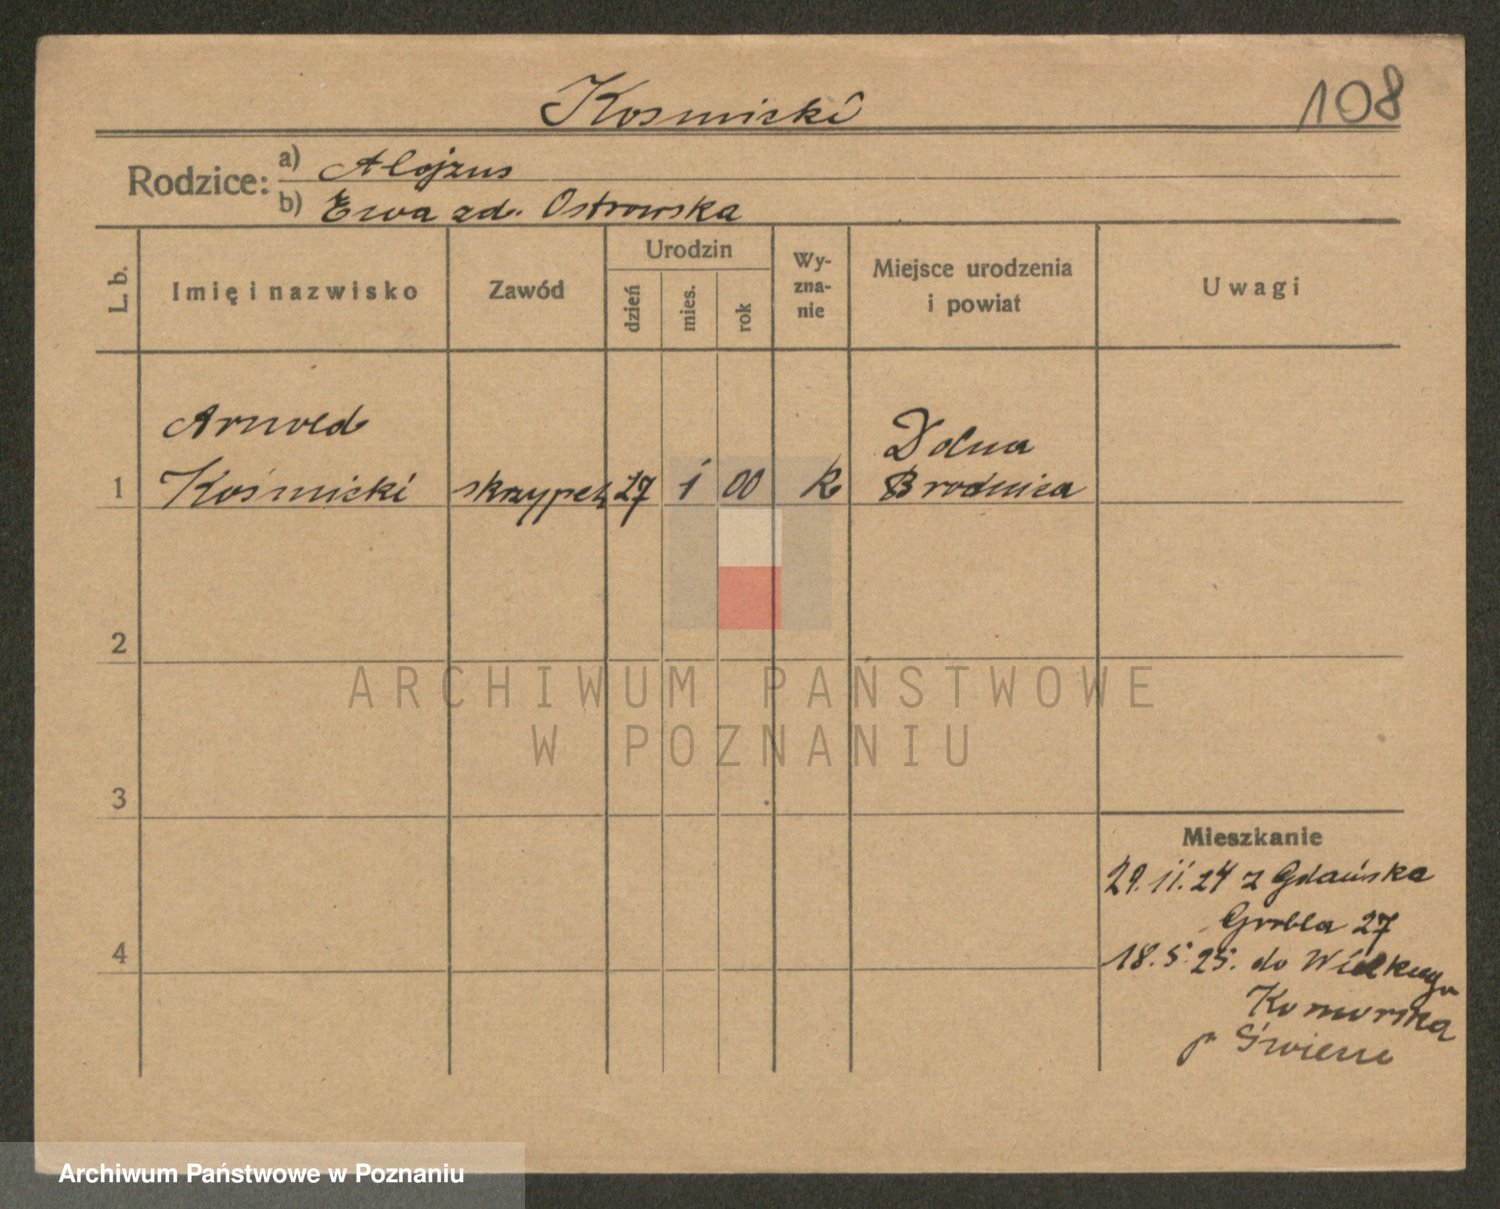 Kosmicki
108
Rodzice: a) Alojzus
b) Ewa zd. Ostrowska
L. b.
Imię i nazwisko
Zawód
Urodzin
dzień
mies.
rok
Wy-
zna-
nie
Miejsce urodzenia
i powiat
Uwagi
Arnold
Dolna
1 Kośmicki skrzypek 27 i 00 k Brodnica
2
ARCHIWUM PAŃSTWOWE
W POZNANIU
3
Mieszkanie
29.ii.24 z Gdańska
Grobla 27
4
18.5.25. do Wielkiego
Komorska
p Świecie
Archiwum Państwowe w Poznaniu